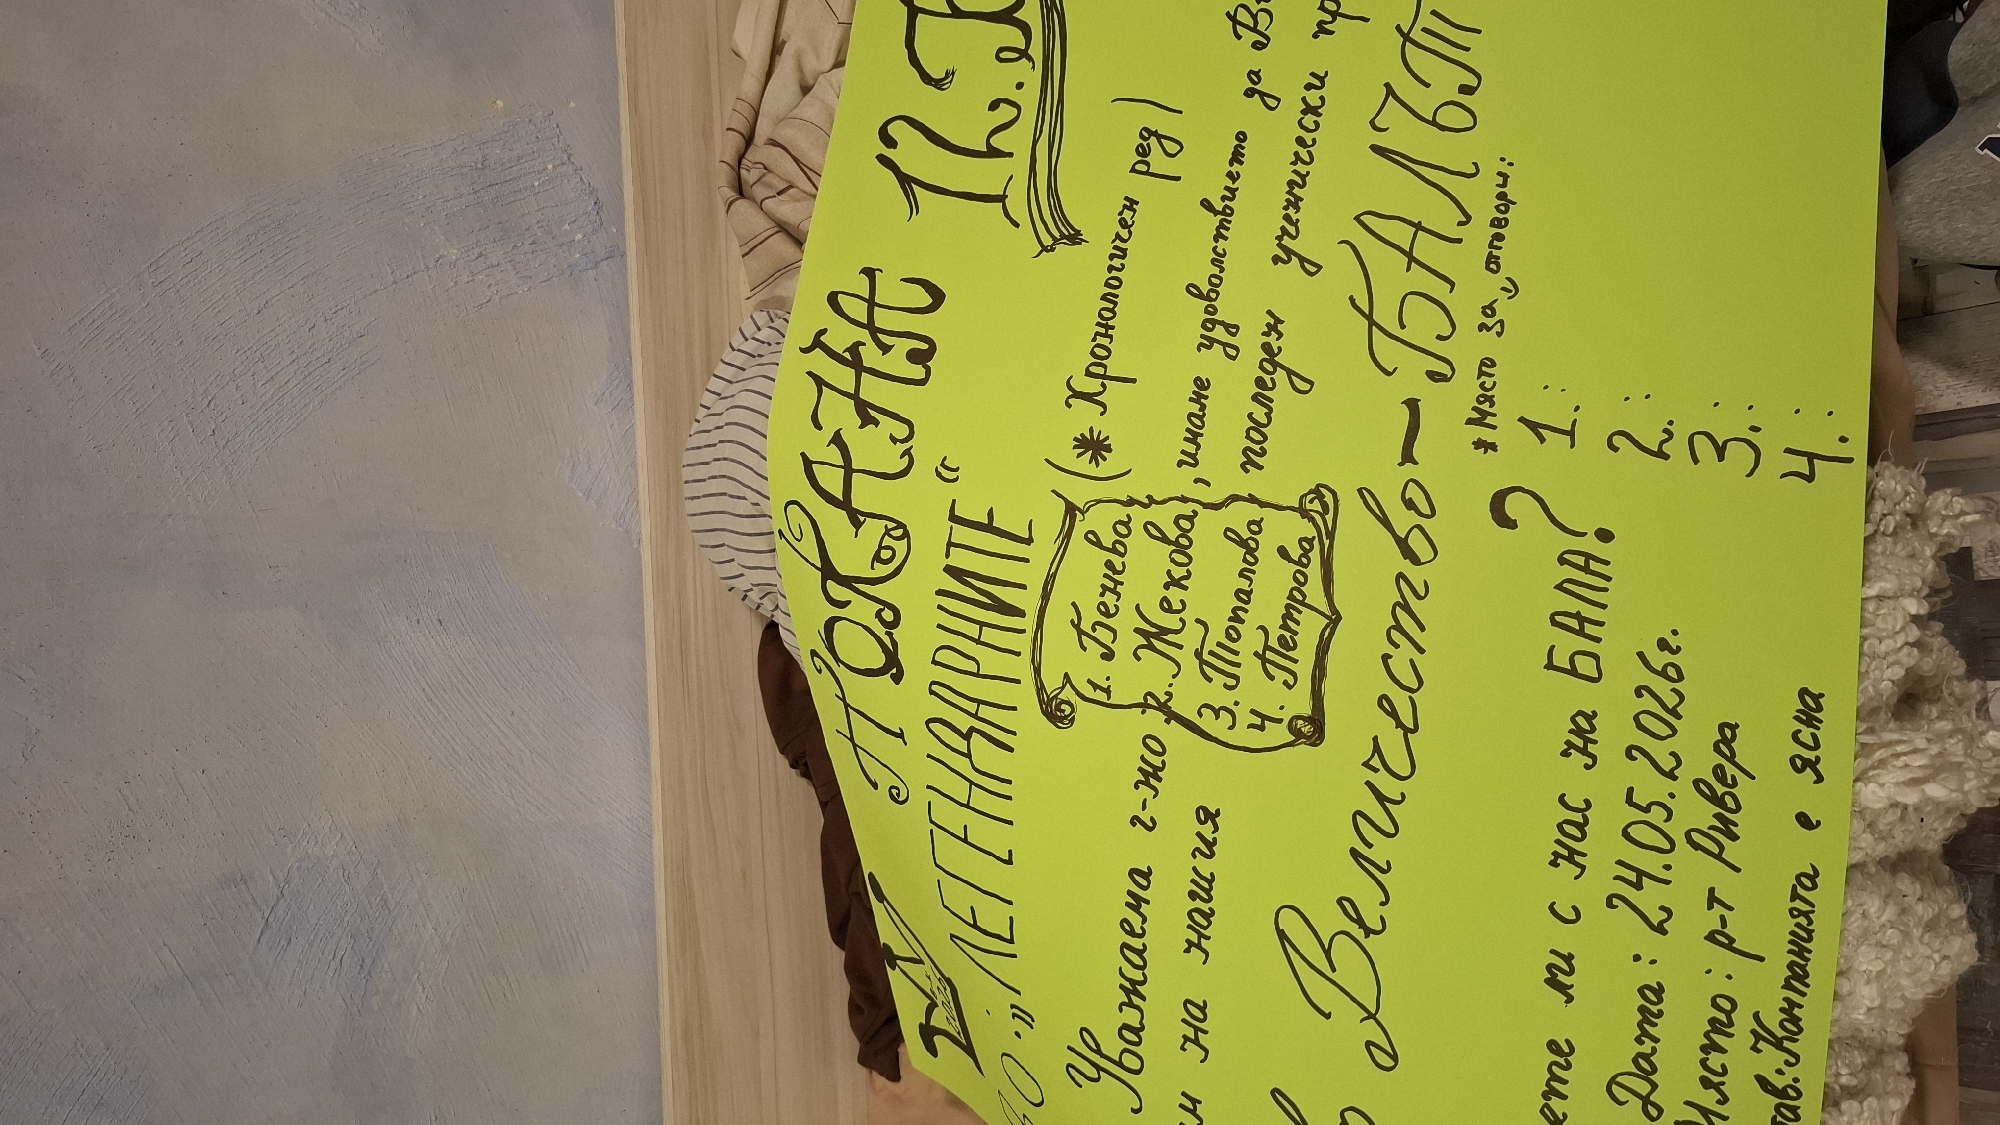 ПОКАНА 12.
„ЛЕГЕНДАРНИТЕ“
(* Хронологичен ред)
Уважаема г-жо
1. Бенева
2. Жекова
3. Топалова
4. Петрова
, имаме удоволствието да
на нашия последен ученически
Величество – БАЛЪТ
*място за отговори:
ми с нас на БАЛА?
1.:
2.:
3.:
4.:
Дата: 24.05.2026г.
Място: р-т Ривера
Компанията е ясна